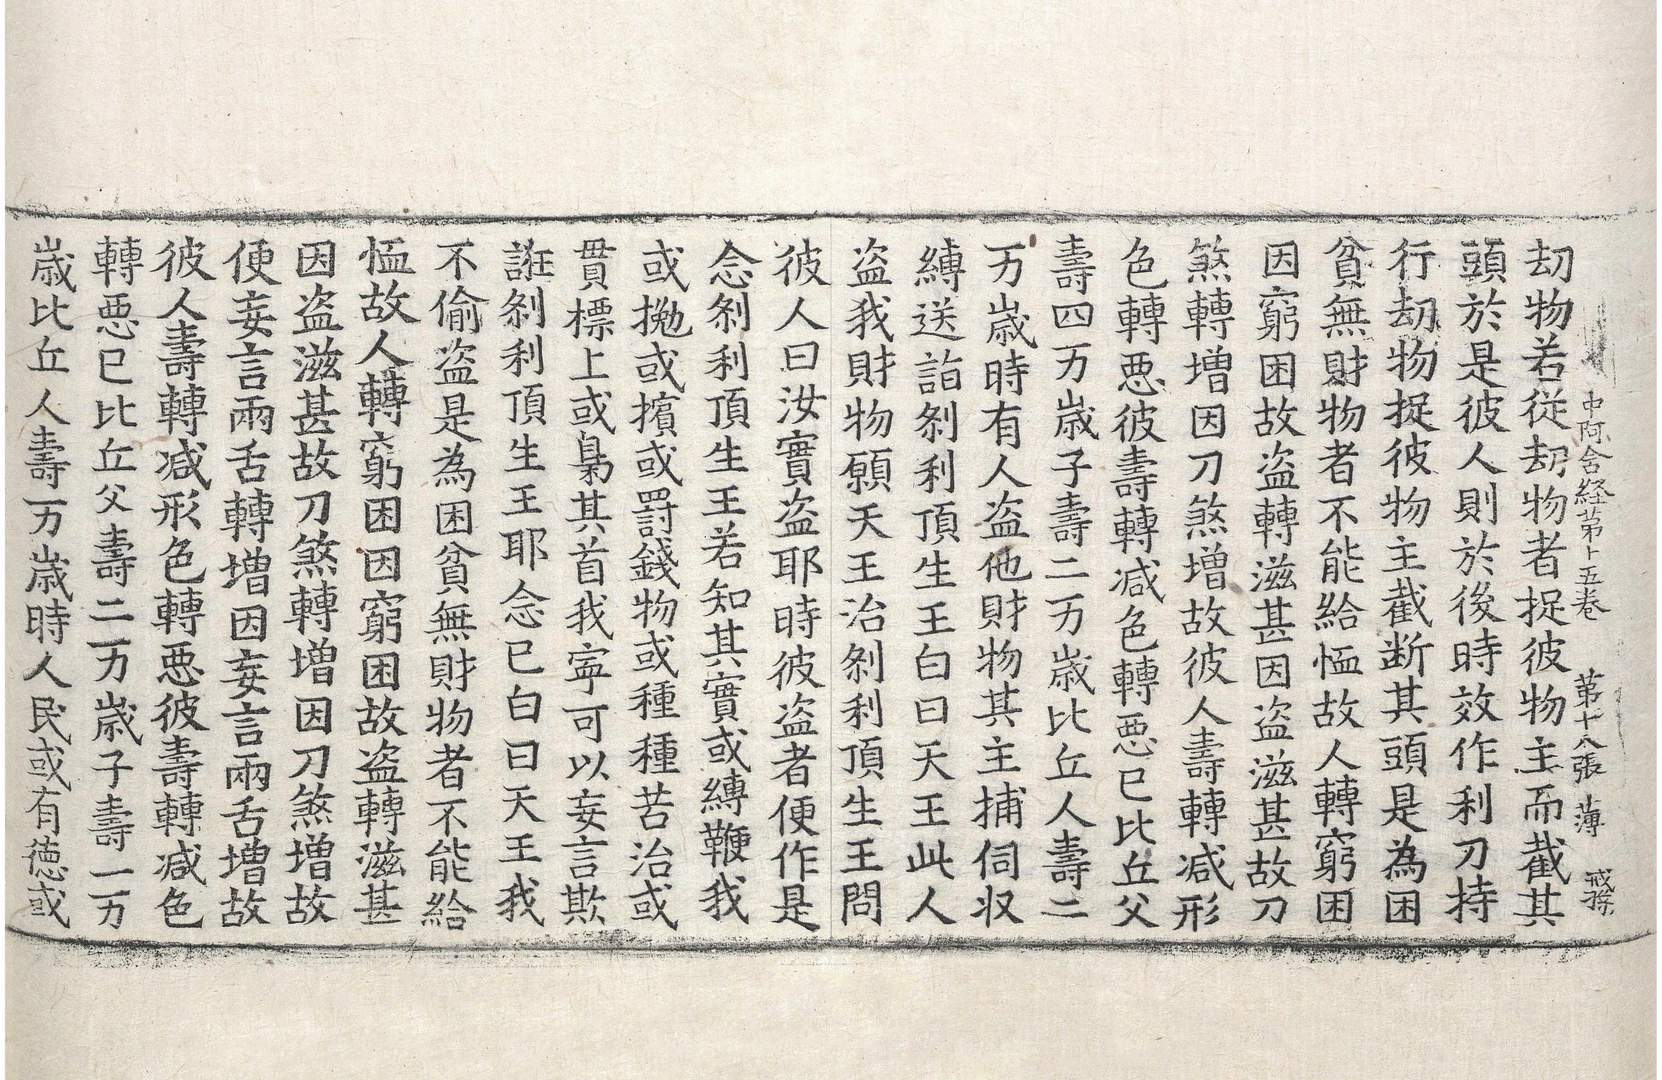 中阿含経第十五巻 第十八張 薄
劫物若従劫物者捉彼物主而截其
頭於是彼人則於後時效作利刀持
行劫物捉彼物主截断其頭是為困
貧無財物者不能給恤故人轉窮困
因窮困故盗轉滋甚因盗滋甚故刀
煞轉增因刀煞增故彼人壽轉减形
色轉悪彼壽轉减色轉悪已比丘父
壽四万歳子壽二万歳比丘人壽二
万歳時有人盗他財物其主捕伺収
縛送詣剎利頂生王白曰天王此人
盗我財物願天王治剎利頂生王問
彼人曰汝實盗耶時彼盗者便作是
念剎利頂生王若知其實或縛鞭我
或拋或擯或罸錢物或種種苦治或
貫標上或梟其首我寧可以妄言欺
誑剎利頂生王耶念已白曰天王我
不偷盗是為困貧無財物者不能給
恤故人轉窮困因窮困故盗轉滋甚
因盗滋甚故刀煞轉增因刀煞增故
便妄言兩舌轉增因妄言兩舌增故
彼人壽轉减形色轉悪彼壽轉减色
轉悪已比丘父壽二万歳子壽一万
歳比丘人壽一万歳時人民或有德或